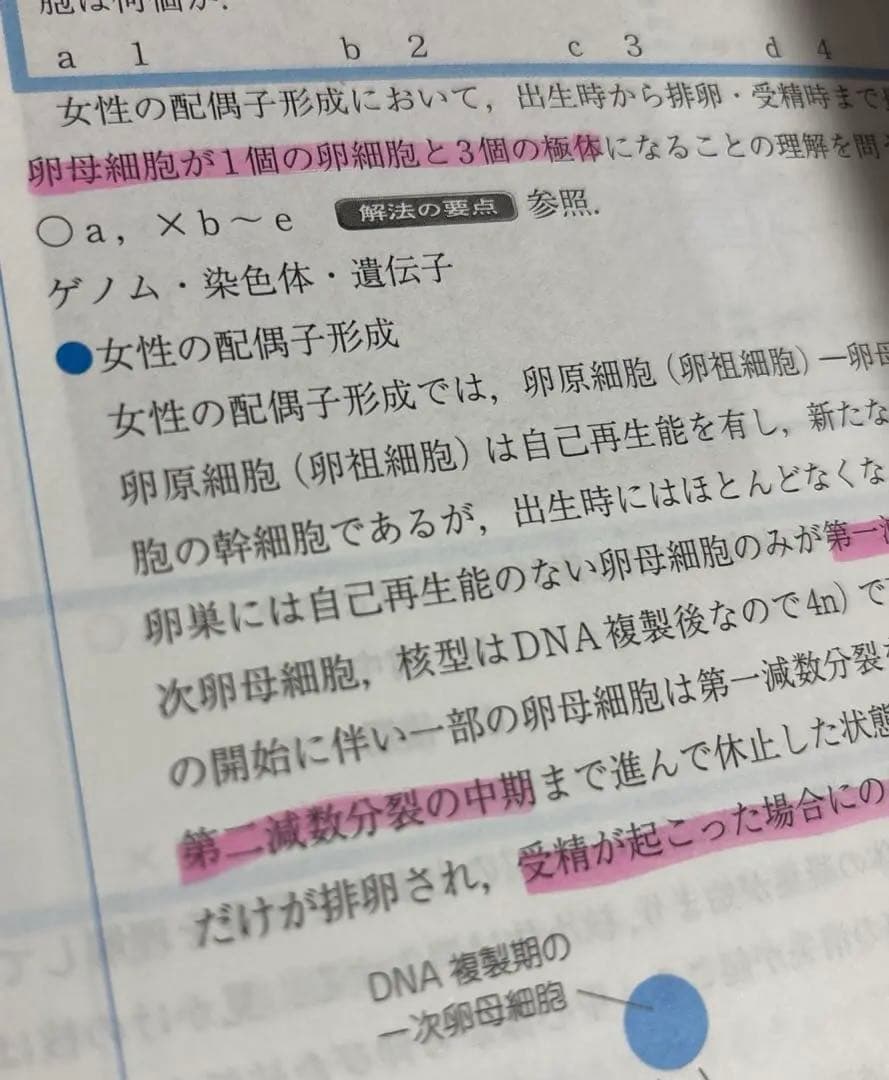 胞は何個か.
a 1 b 2 c 3 d 4
女性の配偶子形成において，出生時から排卵・受精時まで
卵母細胞が1個の卵細胞と3個の極体になることの理解を問
○a，×b～e 解法の要点 参照.
ゲノム・染色体・遺伝子
●女性の配偶子形成
女性の配偶子形成では，卵原細胞（卵祖細胞）―卵母
卵原細胞（卵祖細胞）は自己再生能を有し，新たな
胞の幹細胞であるが，出生時にはほとんどなくな
卵巣には自己再生能のない卵母細胞のみが第一
次卵母細胞，核型はDNA複製後なので4n）で
の開始に伴い一部の卵母細胞は第一減数分裂
第二減数分裂の中期まで進んで休止した状態
だけが排卵され，受精が起こった場合にの
DNA 複製期の
一次卵母細胞